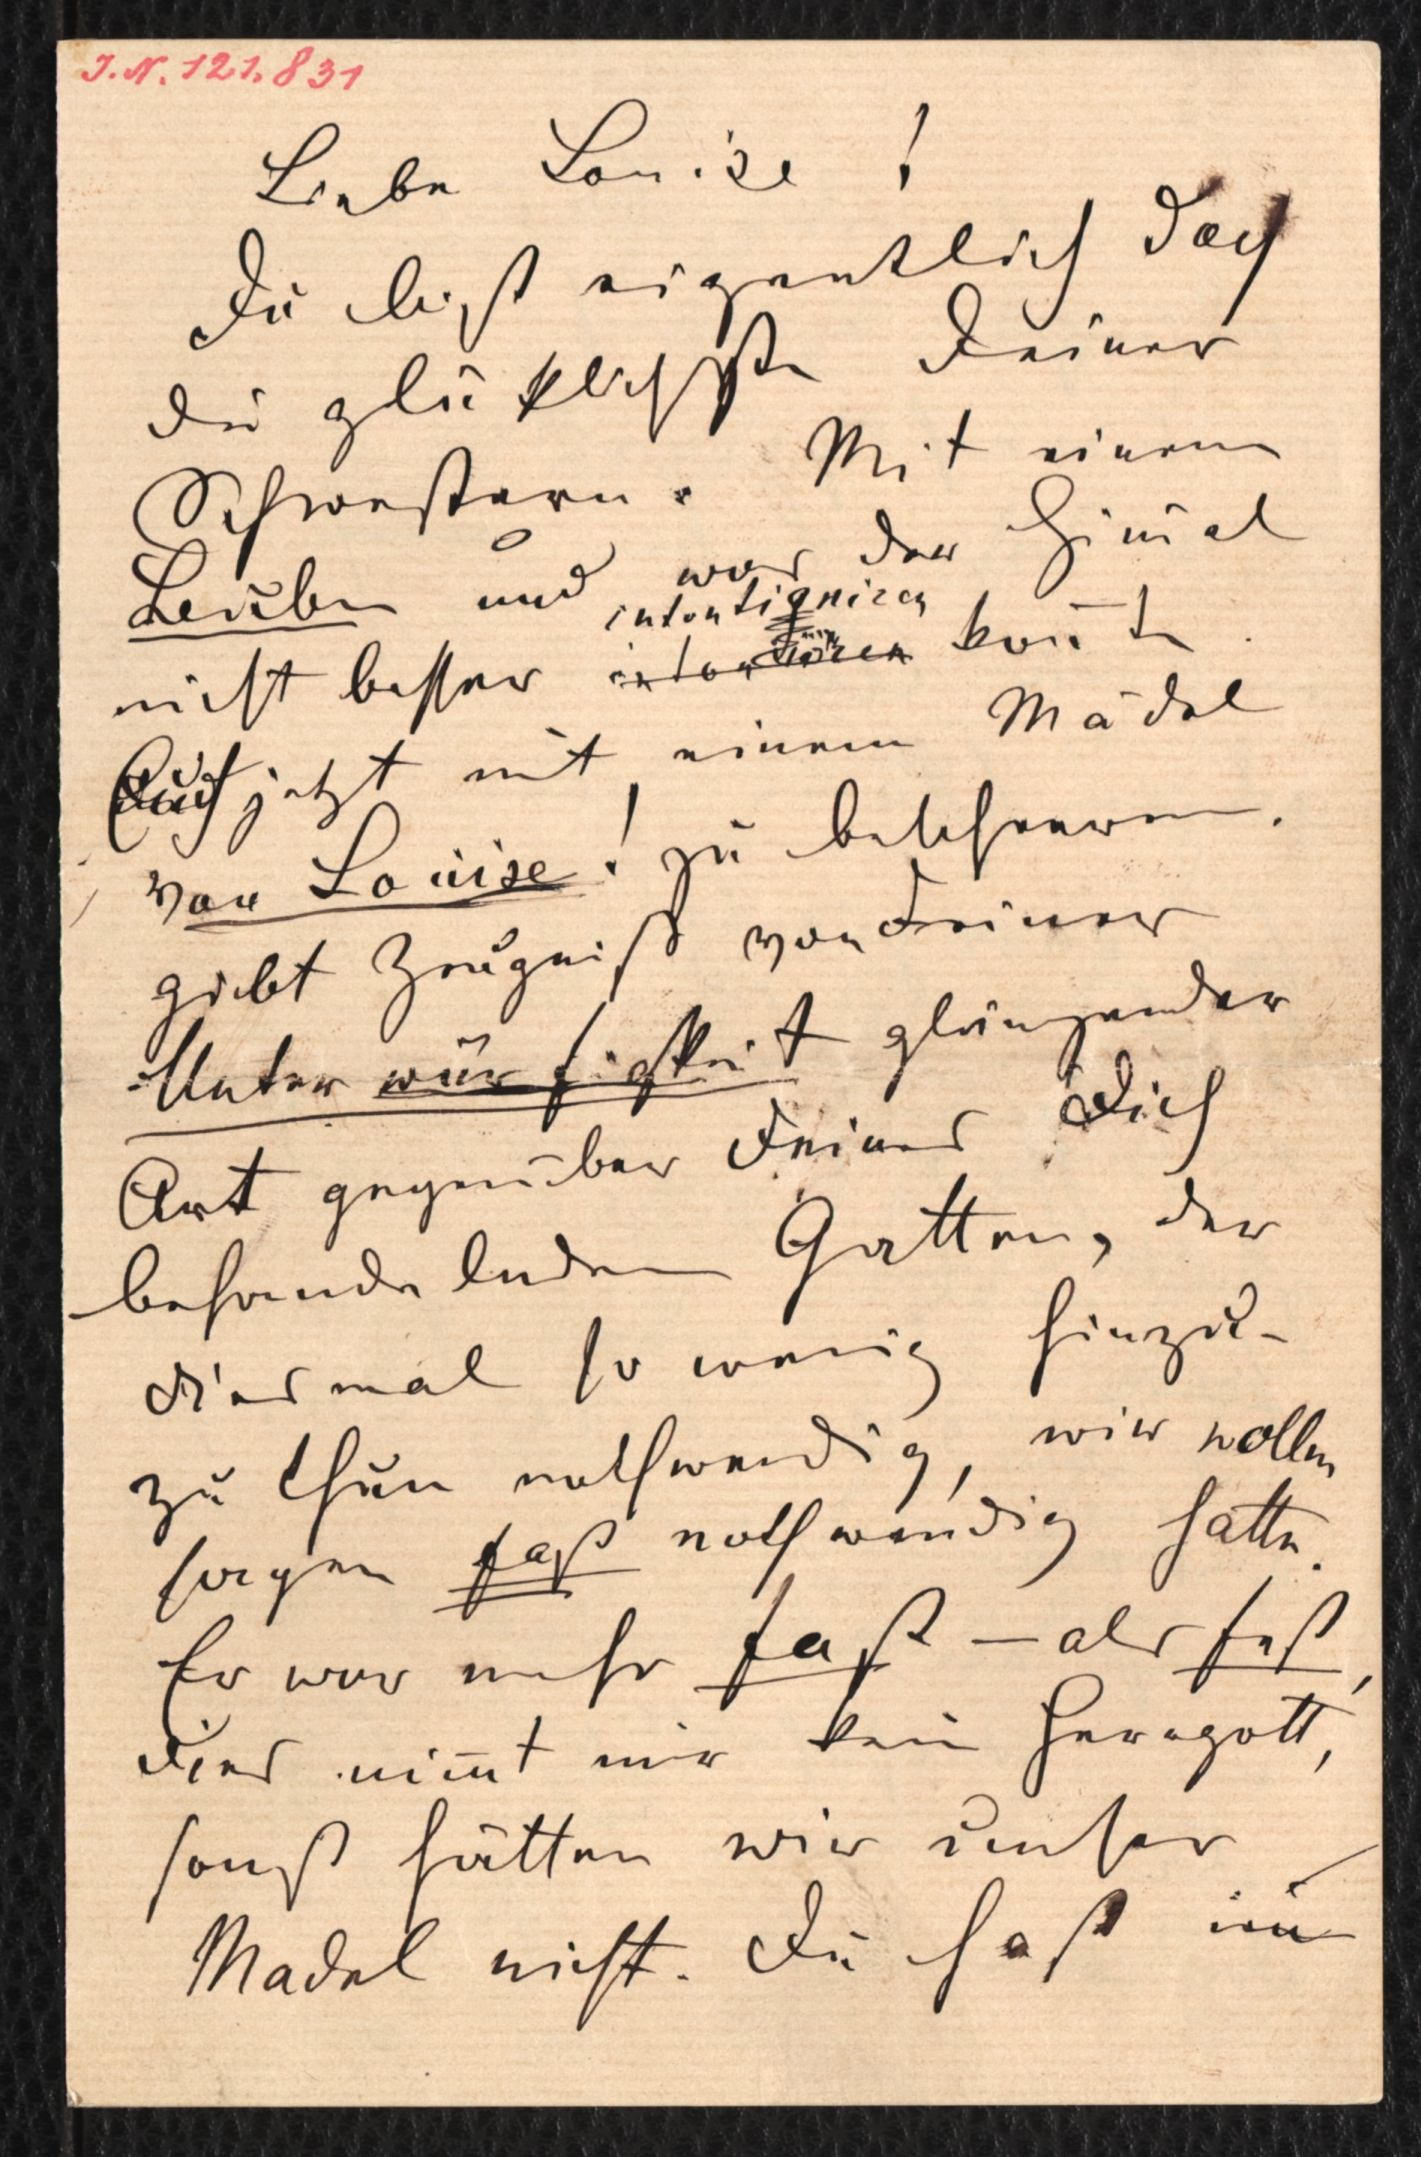 I. N. 121.831
Liebe Louise!
Du bist eigentlich doch
die glücklichste Deiner
Schwestern. Mit einem
und was der Him̄el
intentigniren
nicht besser kon̄te.
Auch jetzt mit einem Mädel
von Louise! zu bescheeren.
gibt Zeugniß von Deiner
Unterwürfigkeit glänzender
Art gegenüber Deines Dich
behandelnden Gatten, der
diesmal so wenig hinzu-
zu thun nothwendig, wir wollen
sagen fast nothwendig hatte.
Er war mehr fast — als fest,
dies nim̄t mir kein Herrgott,
sonst hätten wir unser
Madel nicht. Du hast im̄